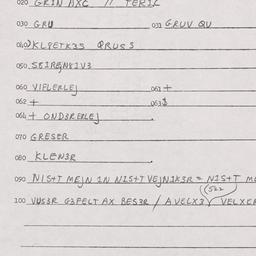 020 GRIN AXC // TERIK
030 GRU 031 GRUV QU
040 KLPETK3S QRUS3
050 SEIREN8IV3
060 VIFLEKLEJ 061 +
062 + 063 $
064 + OND3REKLEJ
070 GRESER
080 KLEN3R
090 NIS+T MEJN IN NIS+T VEJNIK3R = NIS+T M
(522)
100 VUS3R G3FELT AX BES3R / AVELX3 VELXE